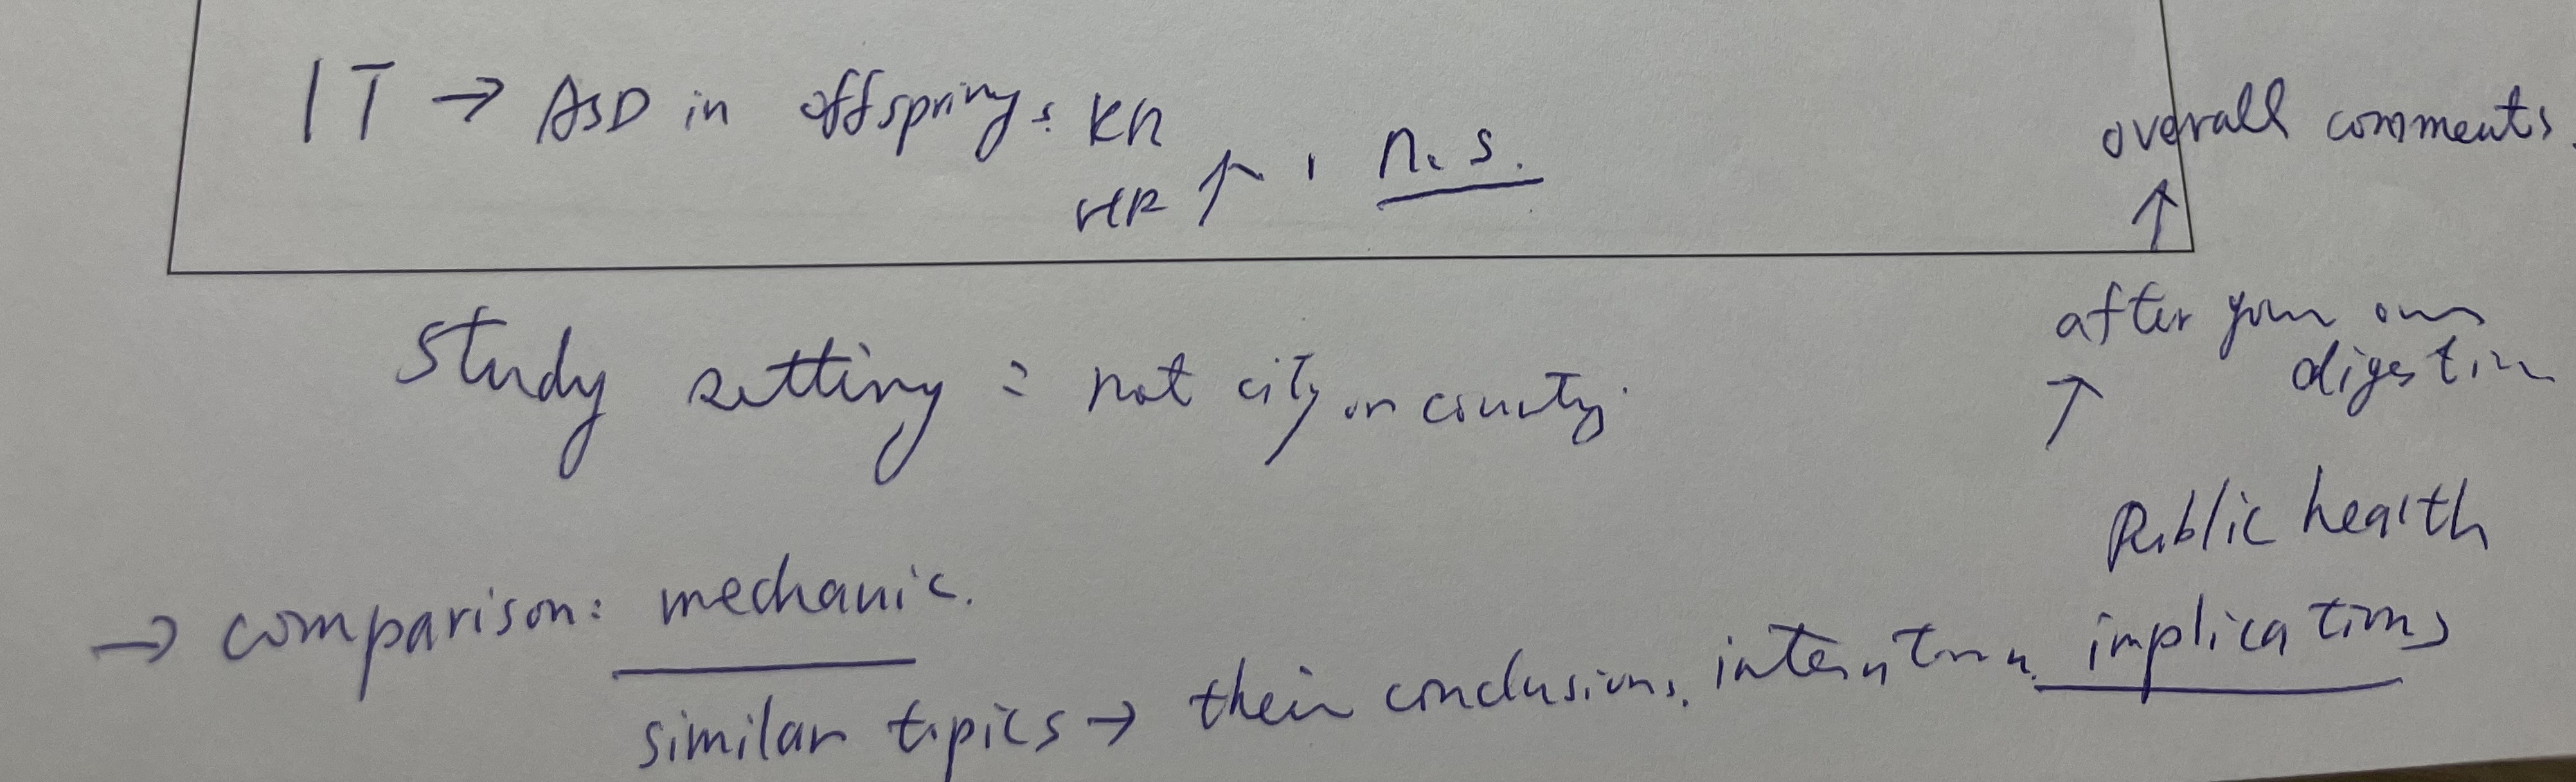 IT → ASD in offspring: RR
HR ↑, n.s.
overall comments.
↑
after your own
digestion
↑
Public health
implications
Study setting = not city or county.
→ comparison: mechanic.
similar topics → their conclusions.